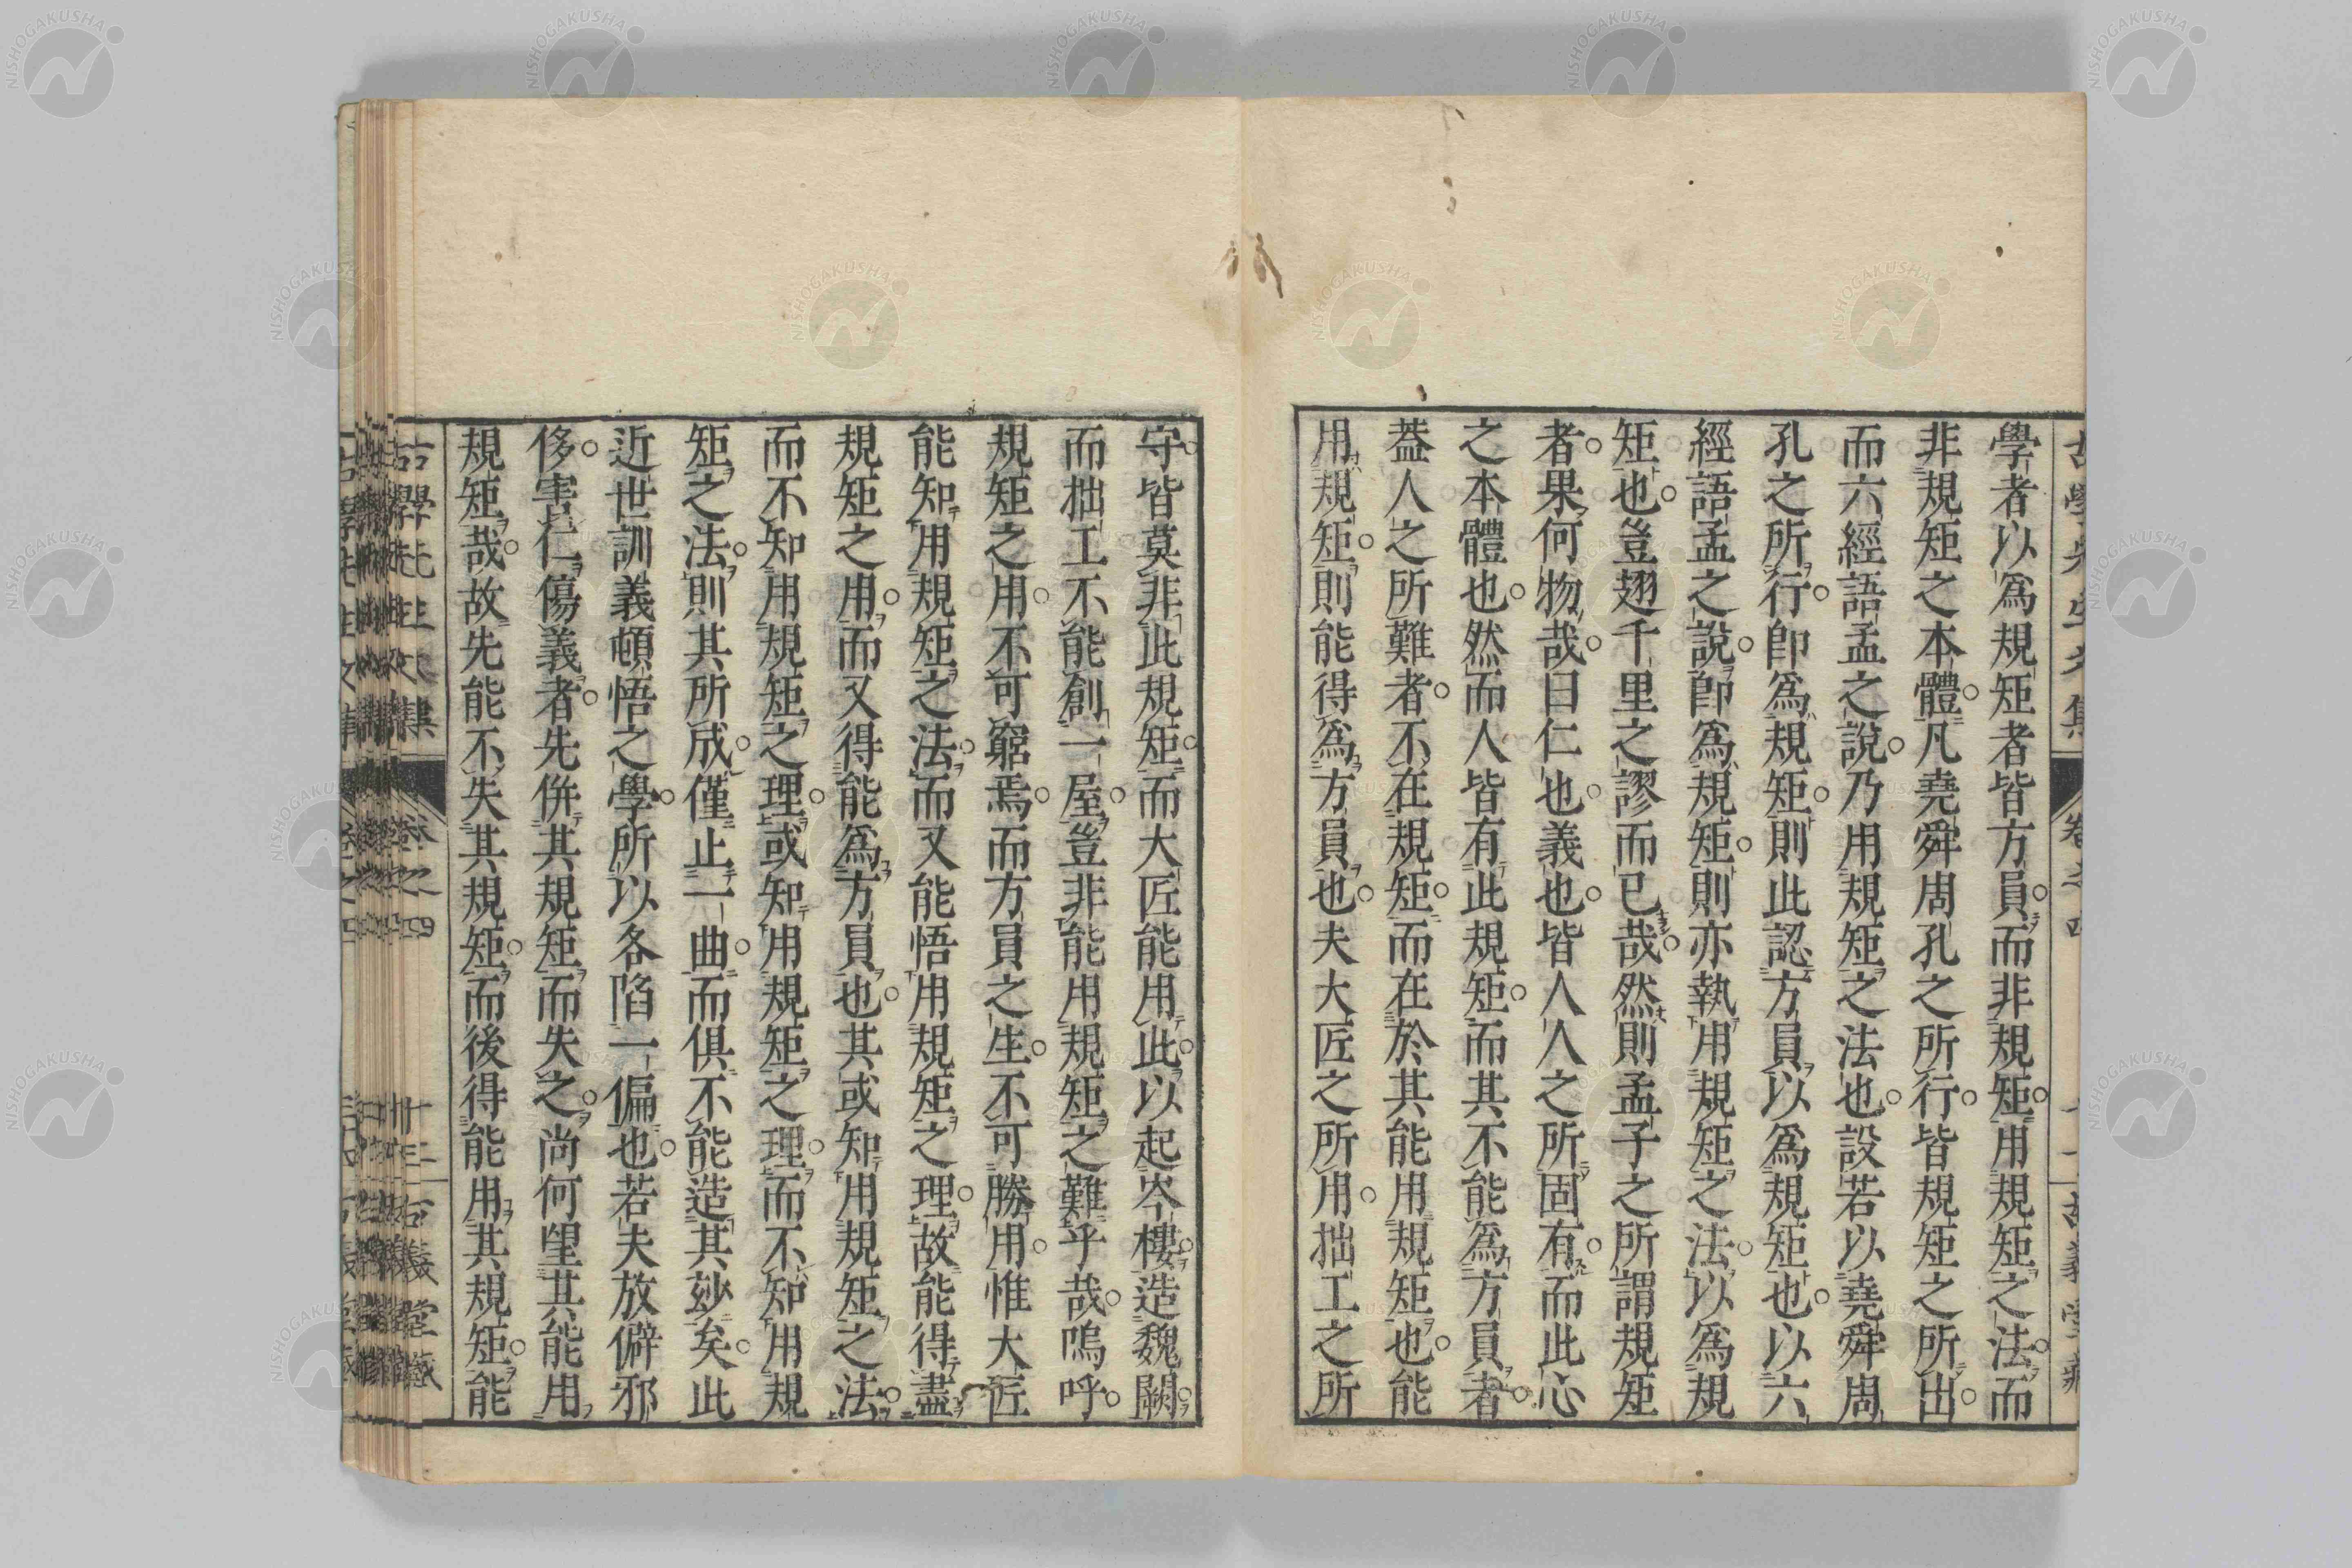 學者以爲規矩者皆方員而非規矩用規矩之法而
非規矩之本體凡堯舜周孔之所行皆規矩之所出
而六經語孟之說乃用規矩之法也設若以堯舜周
孔之所行卽爲規矩則此認方員以爲規矩也以六
經語孟之說卽爲規矩則亦執用規矩之法以爲規
矩也豈翅千里之謬而已哉然則孟子之所謂規矩
者果何物哉曰仁也義也皆人人之所固有而此心
之本體也然而人皆有此規矩而其不能爲方員者
葢人之所難者不在規矩而在於其能用規矩也能
用規矩則能得爲方員也夫大匠之所用拙工之所
守皆莫非此規矩而大匠能用此以起岑樓造魏闕
而拙工不能創一屋豈非能用規矩之難乎哉嗚呼
規矩之用不可窮焉而方員之生不可勝用惟大匠
能知用規矩之法而又能悟用規矩之理故能得盡
規矩之用而又得能爲方員也其或知用規矩之法
而不知用規矩之理或知用規矩之理而不知用規
矩之法則其所成僅止一曲而俱不能造其玅矣此
近世訓義頓悟之學所以各陷一偏也若夫放僻邪
侈害仁傷義者先倂其規矩而失之尚何望其能用
規矩哉故先能不失其規矩而後得能用其規矩能
古學先生文集 卷之四 古義堂藏